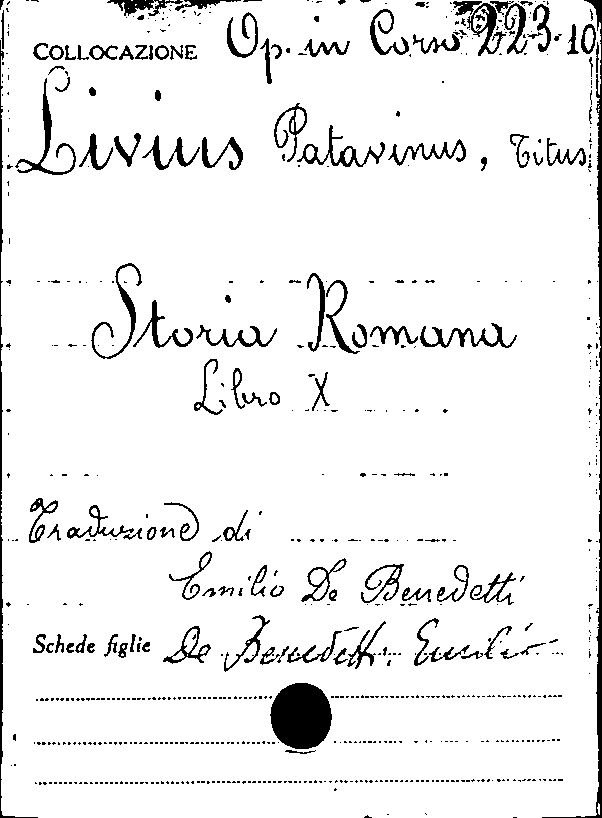 COLLOCAZIONE Op. in Corso 223.10
Livius Patavinus, Titus
Storia Romana
Libro X
Traduzione di
Emilio De Benedetti
Schede figlie De Benedetti Emilio